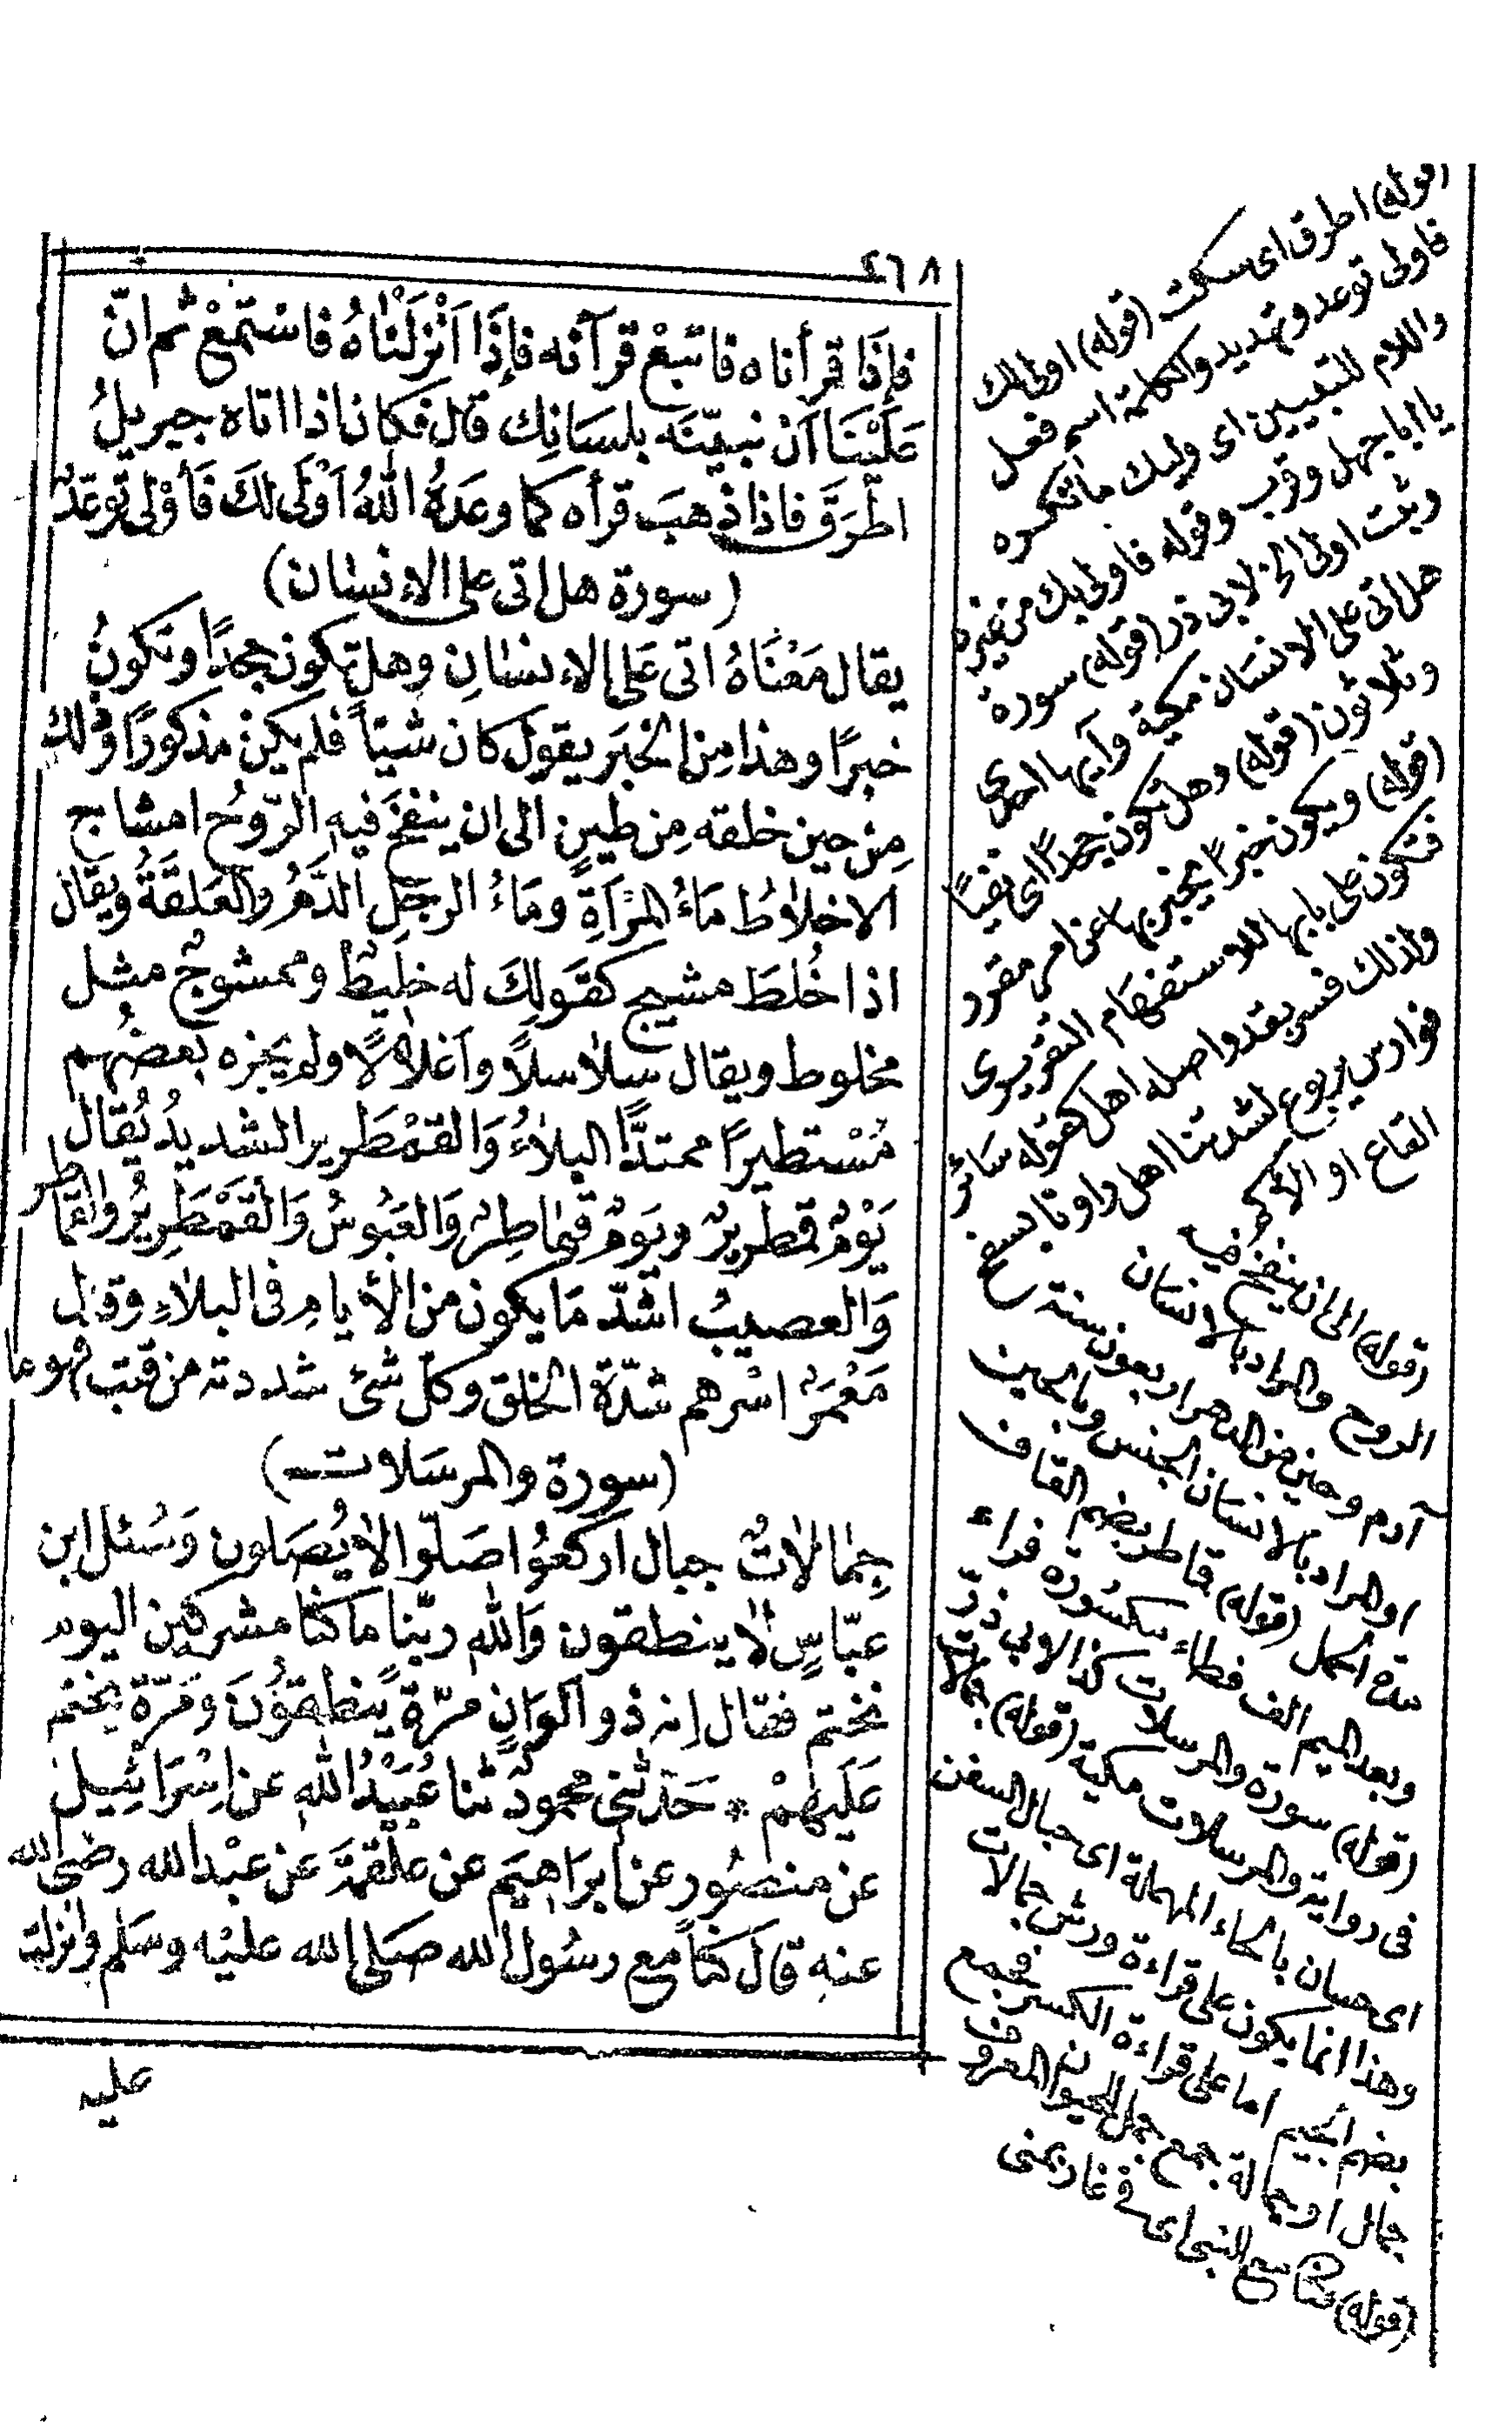 ٤٦٨
فإذا قرأناه فاتبع قرآنه فإذَا اَنْزَلْنَاهُ فاسْتَمِعْ ثم انّ
عَلَيْنَا اَنْ نبيّنَه بلسَانِك قال فكان اذا اتاه جبريلُ
اطْرَقَ فاذا ذهبَ قرأه كما وعَدهُ اللهُ اَوْلَى لكَ فَأوْلى توعّدٌ
(سورة هل اتى على الإنسان)
يقال مَعْنَاهُ اتى عَلى الإنسانِ وهل تكون جحدًا وتكونُ
خبرًا وهذا مِن الخبَر يقول كان شيئاً فلم يكن مذكورًا وذلك
مِنْ حين خلقه مِن طينٍ الى ان ينفخَ فيه الرّوحُ امشاج
الاخلاطُ مَاءُ المَرْاَةِ ومَاءُ الرجَلِ الدَّمُ والعَلقَةُ ويقال
اذا خُلطَ مشيج كقَولِكَ له خلِيطٌ وممشوجٌ مثل
مخلوط ويقال سلاسلاً وأغلالاً ولم يجزه بعضُهم
مُسْتطيرًا ممتدًّا البلاءُ وَالقمْطَرير الشديدُ يُقال
يَوْمٌ قمطريرٌ ويَومٌ قماطِرٌ وَالعَبُوسُ وَالقَمْطَرِيرُ والقماطر
وَالعصيبُ اشدّ مَا يكون من الأيامِ فى البلاءِ وقال
مَعْمَرٌ اسْرهم شدّة الخلق وكلّ شئ شددته من قتب فهو ما
(سورة والمرسَلات)
جِمالاتٌ جبال اركعُوا صَلّوا لا يُصَلون وَسُئل ابن
عبّاسٍ لا ينطقون وَالله ربّنا ما كنّا مشركين اليوم
نختم فقال اِنه ذو اَلوَانٍ مرّة ينطقوُنَ وَمَرّة يختم
عَلَيهْمْ * حَدّثنى محمودٌ ثنا عُبَيْدُ اللهِ عن اِسْرَائيل
عن منصُور عن ابرَاهيَم عن علقمَة عَن عبْد الله رضى الله
عنه قالَ كنّا مع رسُول الله صَلى الله عليْه وسَلم وانزلت
عليه
(قوله) اطرق اى سكت (قوله) اولى لك
فاولى توعد وتهديد والكلمة اسم فعل
واللام للتبيين اى وليك ما تكره
يا ابا جهل وقرب وقوله فاولى لك من غيره
وثبت اولى الخ لابى ذر (قوله) سورة
هل اتى على الانسان مكية وآيها احدى
وثلاثون (قوله) وهل تكون جحدا اى نفيا
(قوله) ويكون خبرا يخبر بها عن امر مقرر
فتكون على بابها للاستفهام التقريرى
ولذلك فسر بقد واصله اهل كقوله سائل
فوارس يربوع لشدتنا اهل راونا بسفح
القاع اذ الاكم
(قوله) الى ان ينفخ فيه
الروح والمراد بالانسان
آدم وحين من الدهر اربعون سنة
او المراد بالانسان الجنس وبالحين
مدة الحمل (قوله) قماطر بضم القاف
وبعد الميم الف فطاء مكسورة فراء
(قوله) سورة والمرسلات كذا لابى ذرّ
فى رواية والمرسلات مكية (قوله) جمالات
اى حبال بالحاء المهملة اى حبال السفن
وهذا انما يكون على قراءة ورش جمالات
بضم الجيم اما على قراءة الكسر فجمع
جمال او جمالة جمع جمل للحيوان المعروف
(قوله) كنا مع النبى اى فى غار بمنى